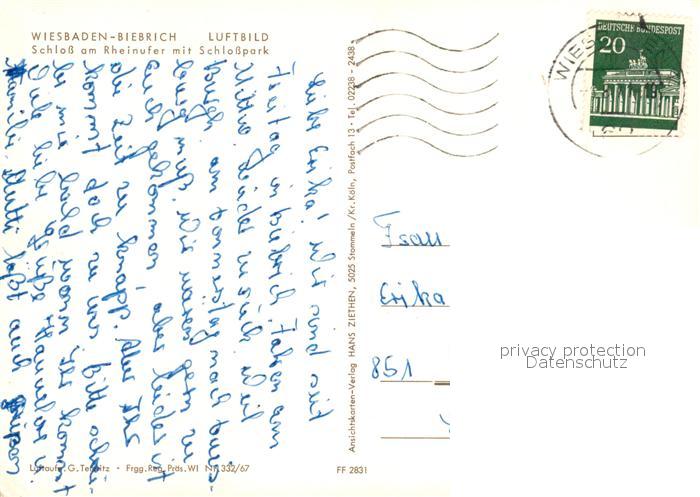 WIESBADEN-BIEBRICH LUFTBILD
Schloß am Rheinufer mit Schloßpark
Liebe Erika! Wir sind seit
Freitag in Biebrich. Fahren am
Mittw. wieder zurück. Weil
am Donnerstag nach
muß. Wir wären gern zu
euch gekommen, aber leider ist
die Zeit zu knapp. Aber Ihr
kommt doch zu uns. Bitte
mir bald wann Ihr kommt
Viele liebe Grüße Hannelore u.
Familie. Mutti läßt auch grüßen
Luftaufn. G. Tenbitz · Frgg. Reg. Präs. WI Nr. 332/67
FF 2831
Ansichtskarten-Verlag HANS ZIETHEN, 5025 Stommeln/Kr. Köln, Postfach 13 · Tel. 02238 - 2438
DEUTSCHE BUNDESPOST
20
WIESBADEN
Frau
Erika
851
privacy protection
Datenschutz